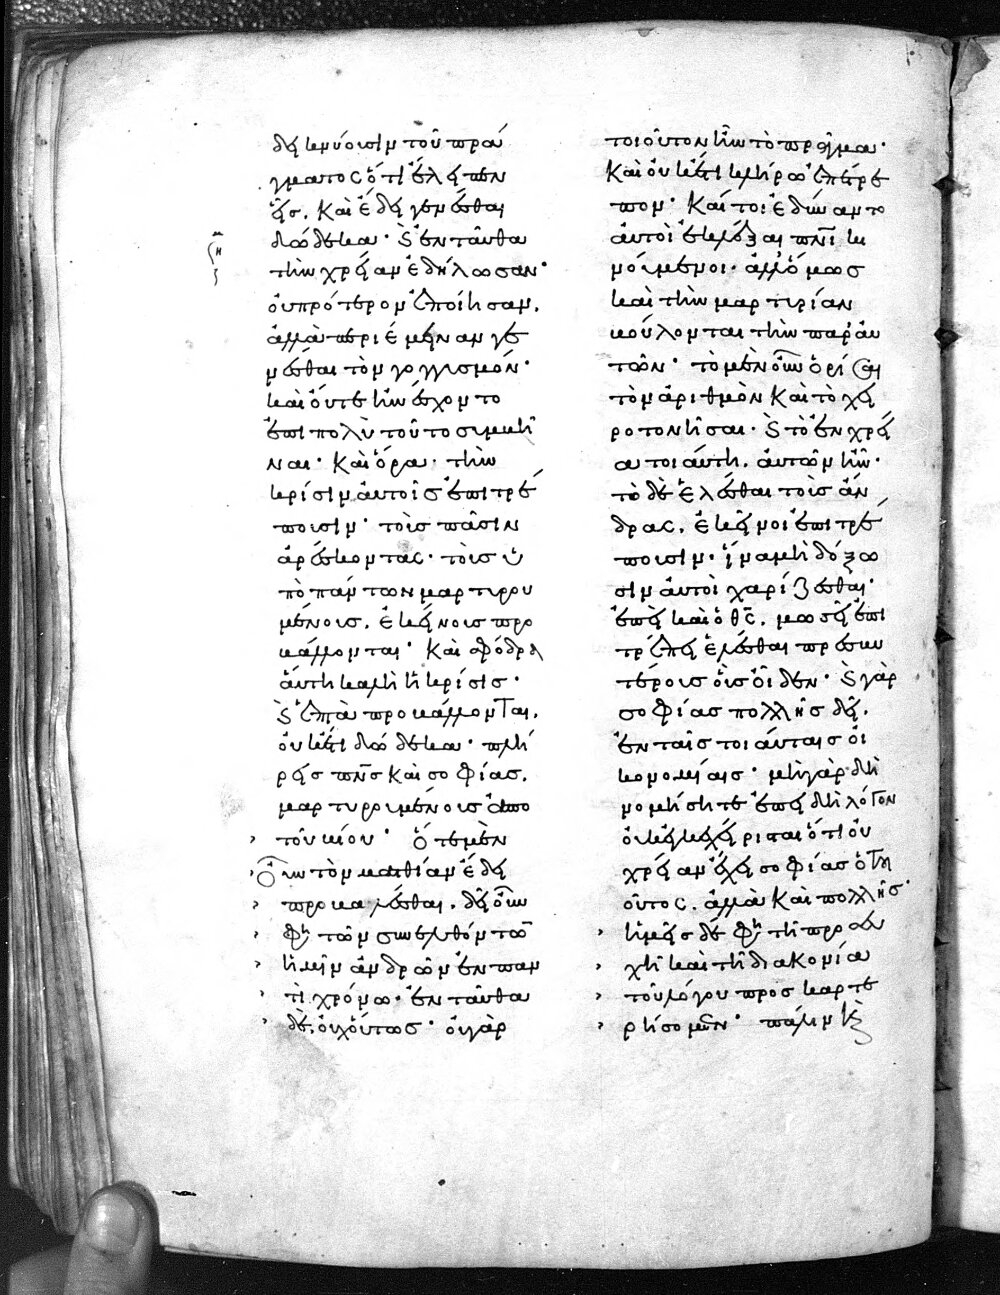 δεικνύουσιν τοῦ πρά
γματος ὅτι ἔλειπεν
εἷς. Καὶ ἔδει γενέσθαι
δώδεκα· καὶ ἐνταῦθα
τὴν χρείαν ἐδήλωσαν·
οὐ πρότερον ἐποίησαν,
ἀλλὰ περιέμειναν γε
νέσθαι τὸν γογγυσμόν·
καὶ οὔτε ἠνέσχοντο
ἐπιπολὺ τοῦτο συμβῆ
ναι· Καὶ ὅρα· τὴν
κρίσιν αὐτοῖς ἐπιτρέ
πουσιν· τοὺς πᾶσιν
ἀρέσκοντας· τοὺς ὑ
πὸ πάντων μαρτυρου
μένους, ἐκείνους προ
βάλλονται· Καὶ σφόδρα
αὕτη καλὴ ἡ κρίσις·
καὶ προβάλλονται,
οὐκέτι δώδεκα· πλή
ρεις πν̅ς καὶ σοφίας,
μαρτυρουμένους ἀπὸ
τοῦ βίου· Ὅτε μὲν
οὖν τὸν ματθίαν ἔδει
προβαλέσθαι, δεῖ οὖν
φη τῶν συνελθόντων
ἡμῖν ἀνδρῶν ἐν παν
τὶ χρόνω· ἐνταῦθα
δὲ, οὐχ οὕτως· οὐ γὰρ
τοιοῦτον ἦν τὸ πρᾶγμα·
Καὶ οὐκέτι κλήρω ἐπέτρε
πον· Καίτοι ἐδύναντο
αὐτοὶ ἐκλέξαι πν̅ι κι
νούμενοι· ἀλλ' ὅμως
καὶ τὴν μαρτυρίαν
βούλονται τὴν παρ' αὐ
τῶν· τὸ μὲν οὖν ὁρίσαι
τὸν ἀριθμὸν καὶ τὸ χει
ροτονῆσαι· καὶ τὸ ἐν χρεί
α τοιαύτη, αὐτῶν ἦν·
τὸ δὲ ἑλέσθαι τοὺς ἄν
δρας, ἐκείνοις ἐπιτρέ
πουσιν· ἵνα μὴ δόξω
σιν αὐτοὶ χαρίζεσθαι·
ἐπεὶ καὶ ὁ θ̅ς, μωσεῖ ἐπι
τρέπει ἑλέσθαι πρεσβυ
τέρους οὓς οἶδεν· καὶ γὰρ
σοφίας πολλῆς δεῖ,
ἐν ταῖς τοιαύταις οἰ
κονομίαις· μὴ γὰρ δὴ
νομήσητε ἐπειδὴ λόγον
οὐκ ἐκεχείρισται ὅτι οὐ
χρείαν ἔχει σοφίας ὁ τοι
οῦτος, ἀλλὰ καὶ πολλῆς·
ἡμεῖς δὲ φη τῆ προσευ
χῆ καὶ τῆ διακονία
τοῦ λόγου προσκαρτε
ρήσομεν· πάλιν